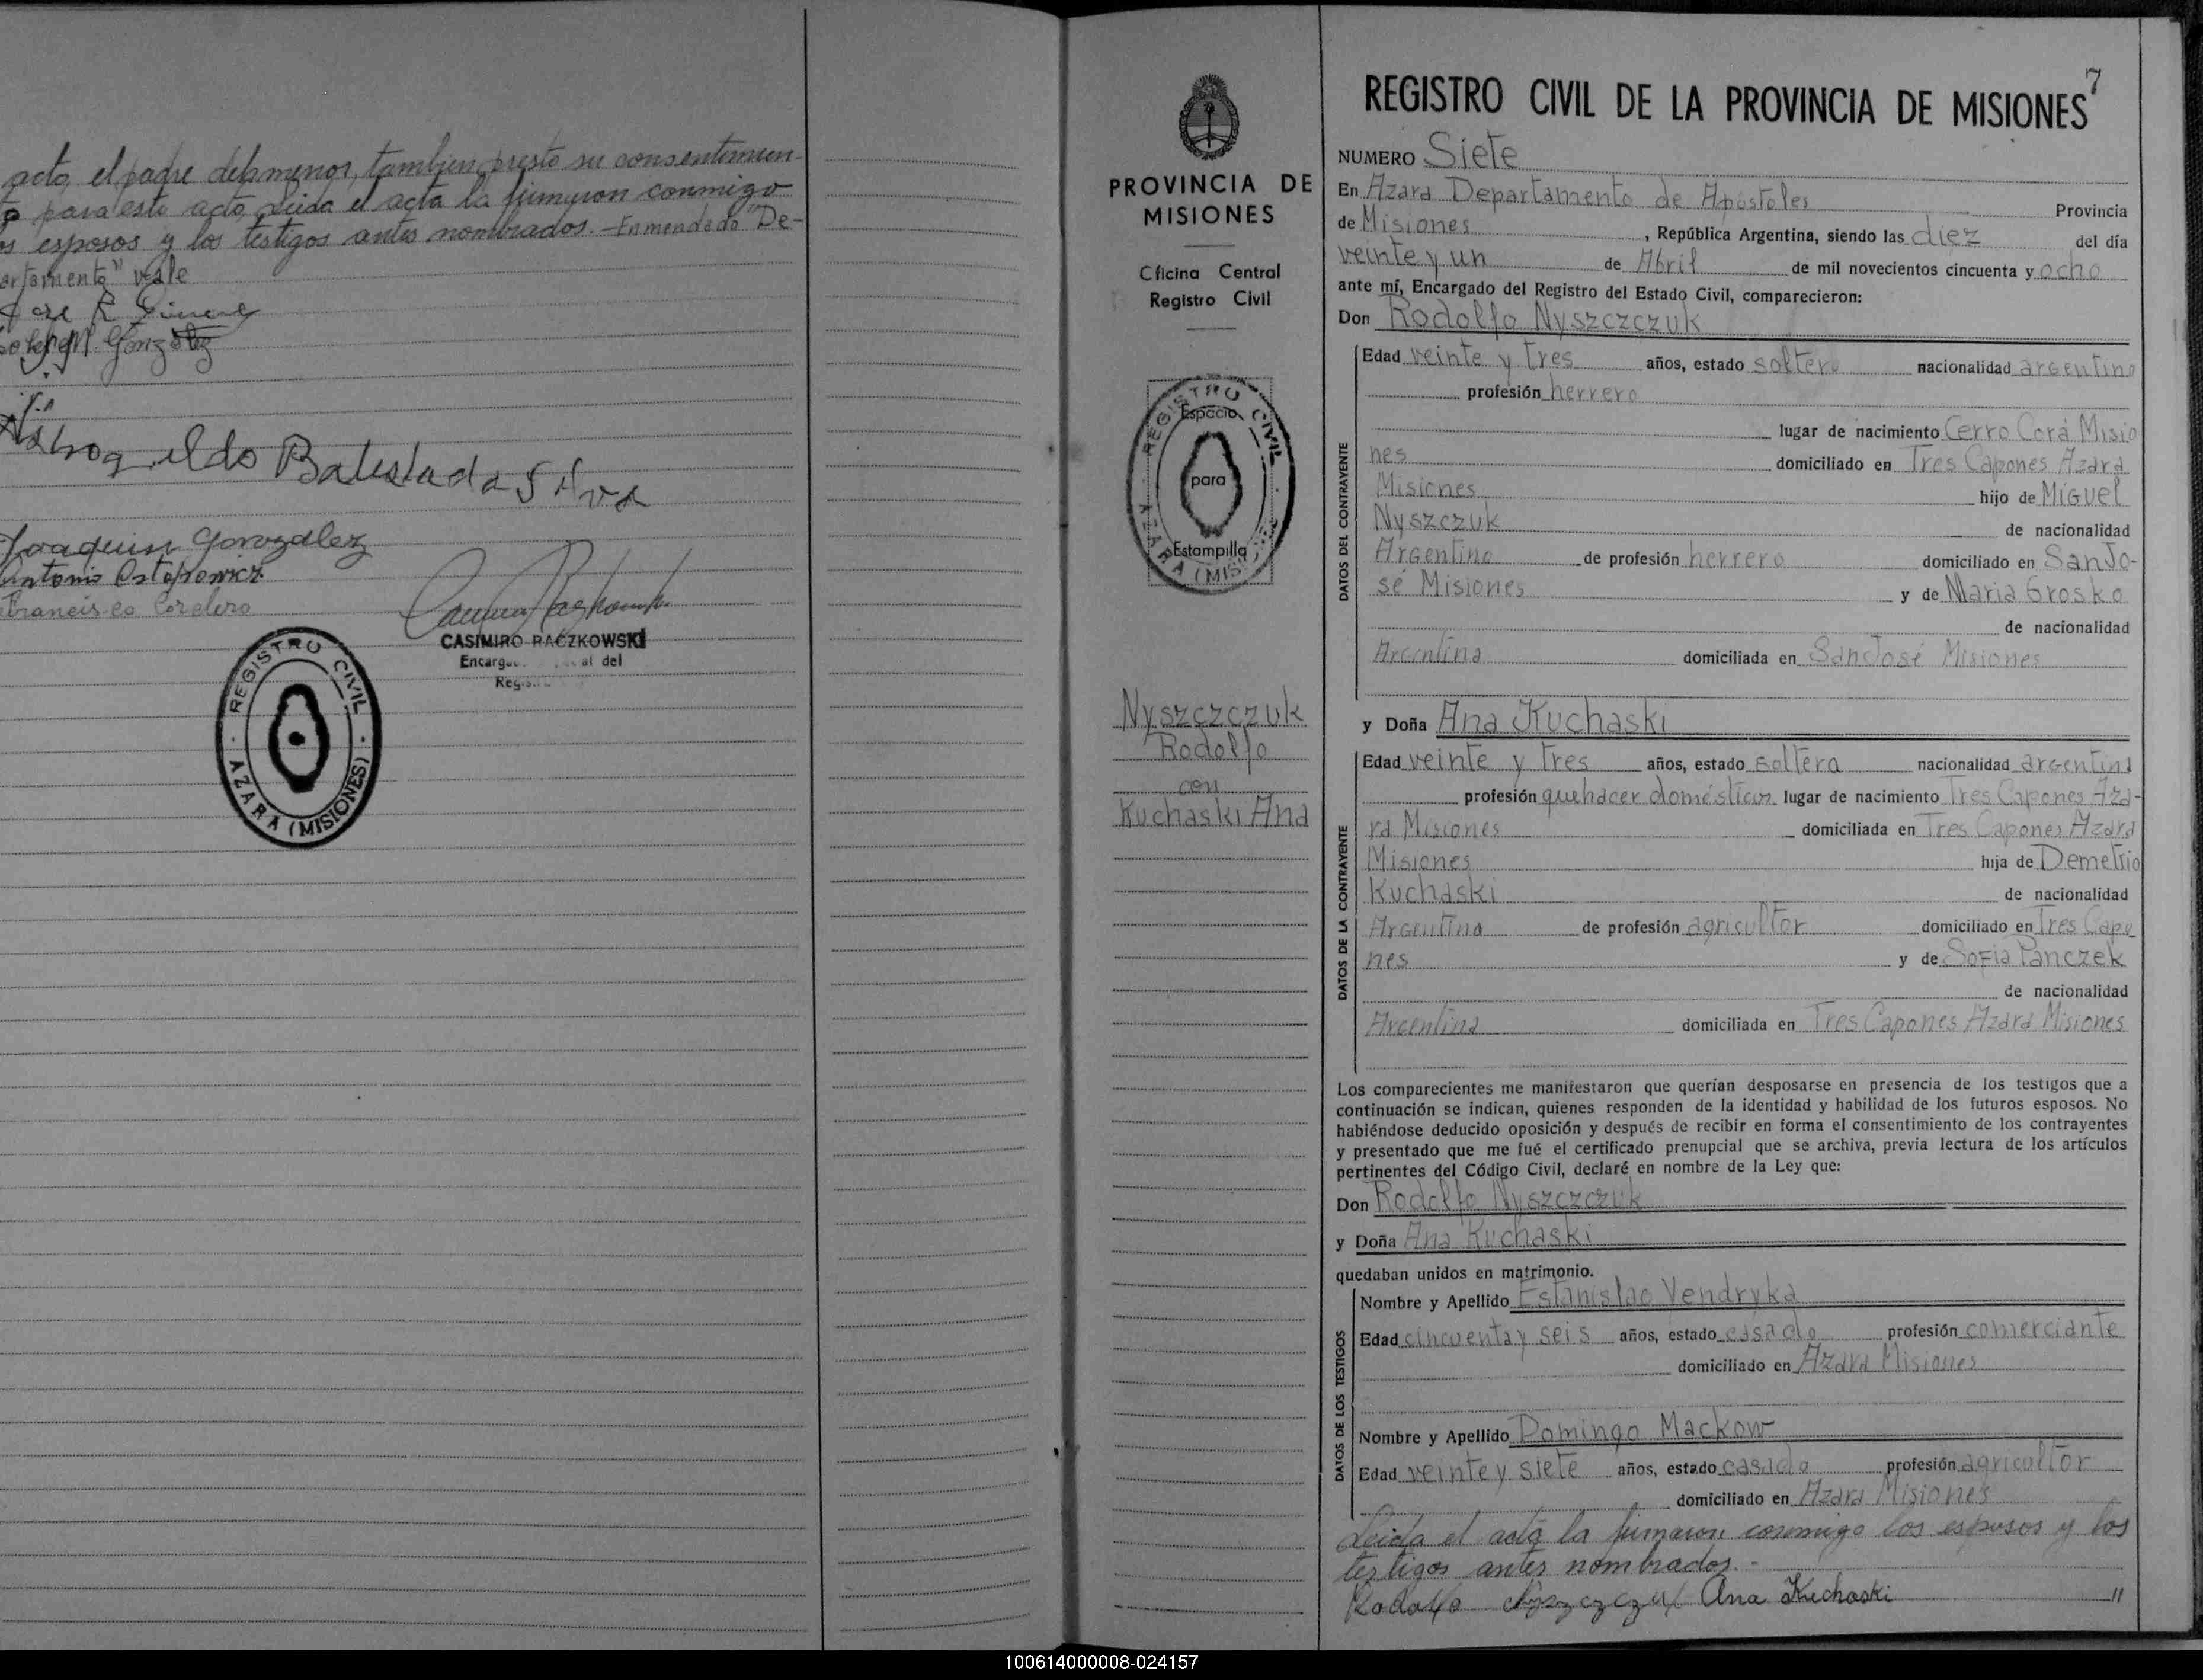 acto, el padre del menor, tambien presto su consentimien-
to para este acto leida el acta la firmaron conmigo
os esposos y los testigos antes nombrados. - Enmendado "De-
artamento" vale
Jose R
M. Gonzalez
Batista da Silva
Joaquin Gonzalez
Antonio Ostapowicz
Francisco Cordero
CASIMIRO RACZKOWSKI
Encarga al del
Regis
REGISTRO CIVIL
AZARA (MISIONES)
PROVINCIA DE
MISIONES
Oficina Central
Registro Civil
REGISTRO CIVIL
Espacio
para
Estampilla
AZARA (MIS
Nyszczczuk
Rodolfo
con
Kuchaski Ana
7
REGISTRO CIVIL DE LA PROVINCIA DE MISIONES
NUMERO Siete
En Azara Departamento de Apóstoles Provincia
de Misiones, República Argentina, siendo las diez del día
veinte y un de Abril de mil novecientos cincuenta y ocho
ante mí, Encargado del Registro del Estado Civil, comparecieron:
Don Rodolfo Nyszczczuk
DATOS DEL CONTRAYENTE
Edad veinte y tres años, estado soltero nacionalidad argentino
profesión herrero
lugar de nacimiento Cerro Corá Misio
nes domiciliado en Tres Capones Azara
Misiones hijo de Miguel
Nyszczuk de nacionalidad
Argentino de profesión herrero domiciliado en San Jo-
sé Misiones y de Maria Grosko
de nacionalidad
Argentina domiciliada en San José Misiones
y Doña Ana Kuchaski
DATOS DE LA CONTRAYENTE
Edad veinte y tres años, estado soltera nacionalidad argentina
profesión quehacer domésticos lugar de nacimiento Tres Capones Aza-
ra Misiones domiciliada en Tres Capones Azara
Misiones hija de Demetrio
Kuchaski de nacionalidad
Argentina de profesión agricultor domiciliado en Tres Capo
nes y de Sofia Panczek
de nacionalidad
Argentina domiciliada en Tres Capones Azara Misiones
Los comparecientes me manifestaron que querían desposarse en presencia de los testigos que a
continuación se indican, quienes responden de la identidad y habilidad de los futuros esposos. No
habiéndose deducido oposición y después de recibir en forma el consentimiento de los contrayentes
y presentado que me fué el certificado prenupcial que se archiva, previa lectura de los artículos
pertinentes del Código Civil, declaré en nombre de la Ley que:
Don Rodolfo Nyszczczuk
y Doña Ana Kuchaski
quedaban unidos en matrimonio.
DATOS DE LOS TESTIGOS
Nombre y Apellido Estanislao Vendryka
Edad cincuenta y seis años, estado casado profesión comerciante
domiciliado en Azara Misiones
Nombre y Apellido Domingo Mackow
Edad veinte y siete años, estado casado profesión agricultor
domiciliado en Azara Misiones
Leida el acta la firmaron conmigo los esposos y los
testigos antes nombrados. -
Rodolfo Nyszczczuk Ana Kuchaski "
100614000008-024157